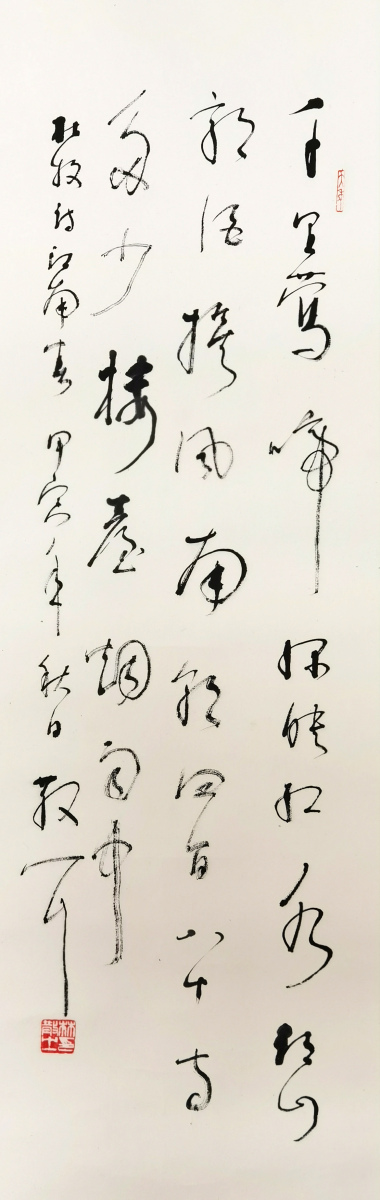 千里鶯啼綠映紅水村山
郭酒旗風南朝四百八十寺
多少樓臺烟雨中
杜牧詩江南春 甲寅年秋日 散耳